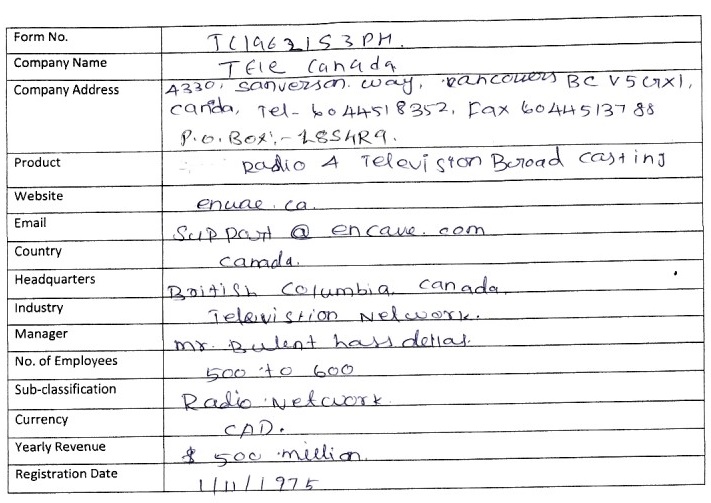 Form No. TC1962153PH.
Company Name Tele Canada
Company Address 4330, Sanverson way, vancouvers BC V5G1X1,
canda, Tel- 6044518352, Fax 6044513788
P.O. Box:-
Product Radio & Television Broad casting
Website encave.ca
Email Support@encave.com
Country canada.
Headquarters British columbia, canada,
Industry Television Network.
Manager Mr. Bulent hass dellas.
No. of Employees 500 to 600
Sub-classification Radio Network
Currency CAD.
Yearly Revenue $ 500 million.
Registration Date 1/11/1975